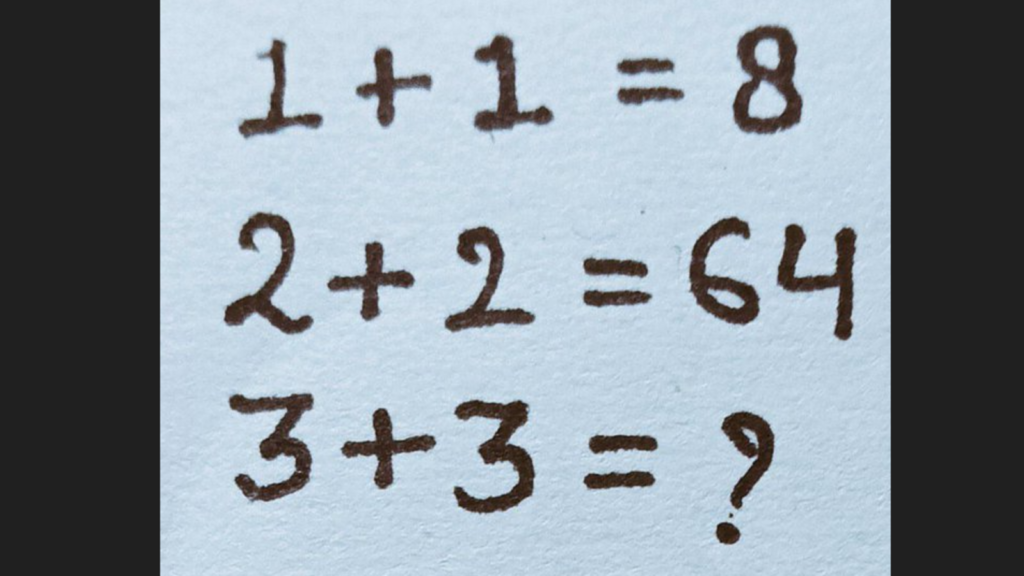 1 + 1 = 8
2 + 2 = 64
3 + 3 = ?